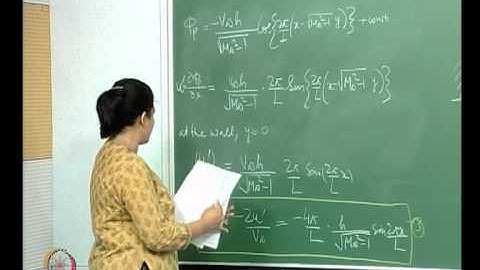 φp = -V∞h / √(M∞²-1) Cos{2π/L (x - √(M∞²-1) y)} + const
u' = ∂φ/∂x = V∞h / √(M∞²-1) · 2π/L Sin{2π/L (x - √(M∞²-1) y)}
at the wall, y≈0
= V∞h / √(M∞²-1) 2π/L Sin(2π/L x)
-2u'/V∞ = -4π/L · h/√(M∞²-1) sin 2πx/L ③